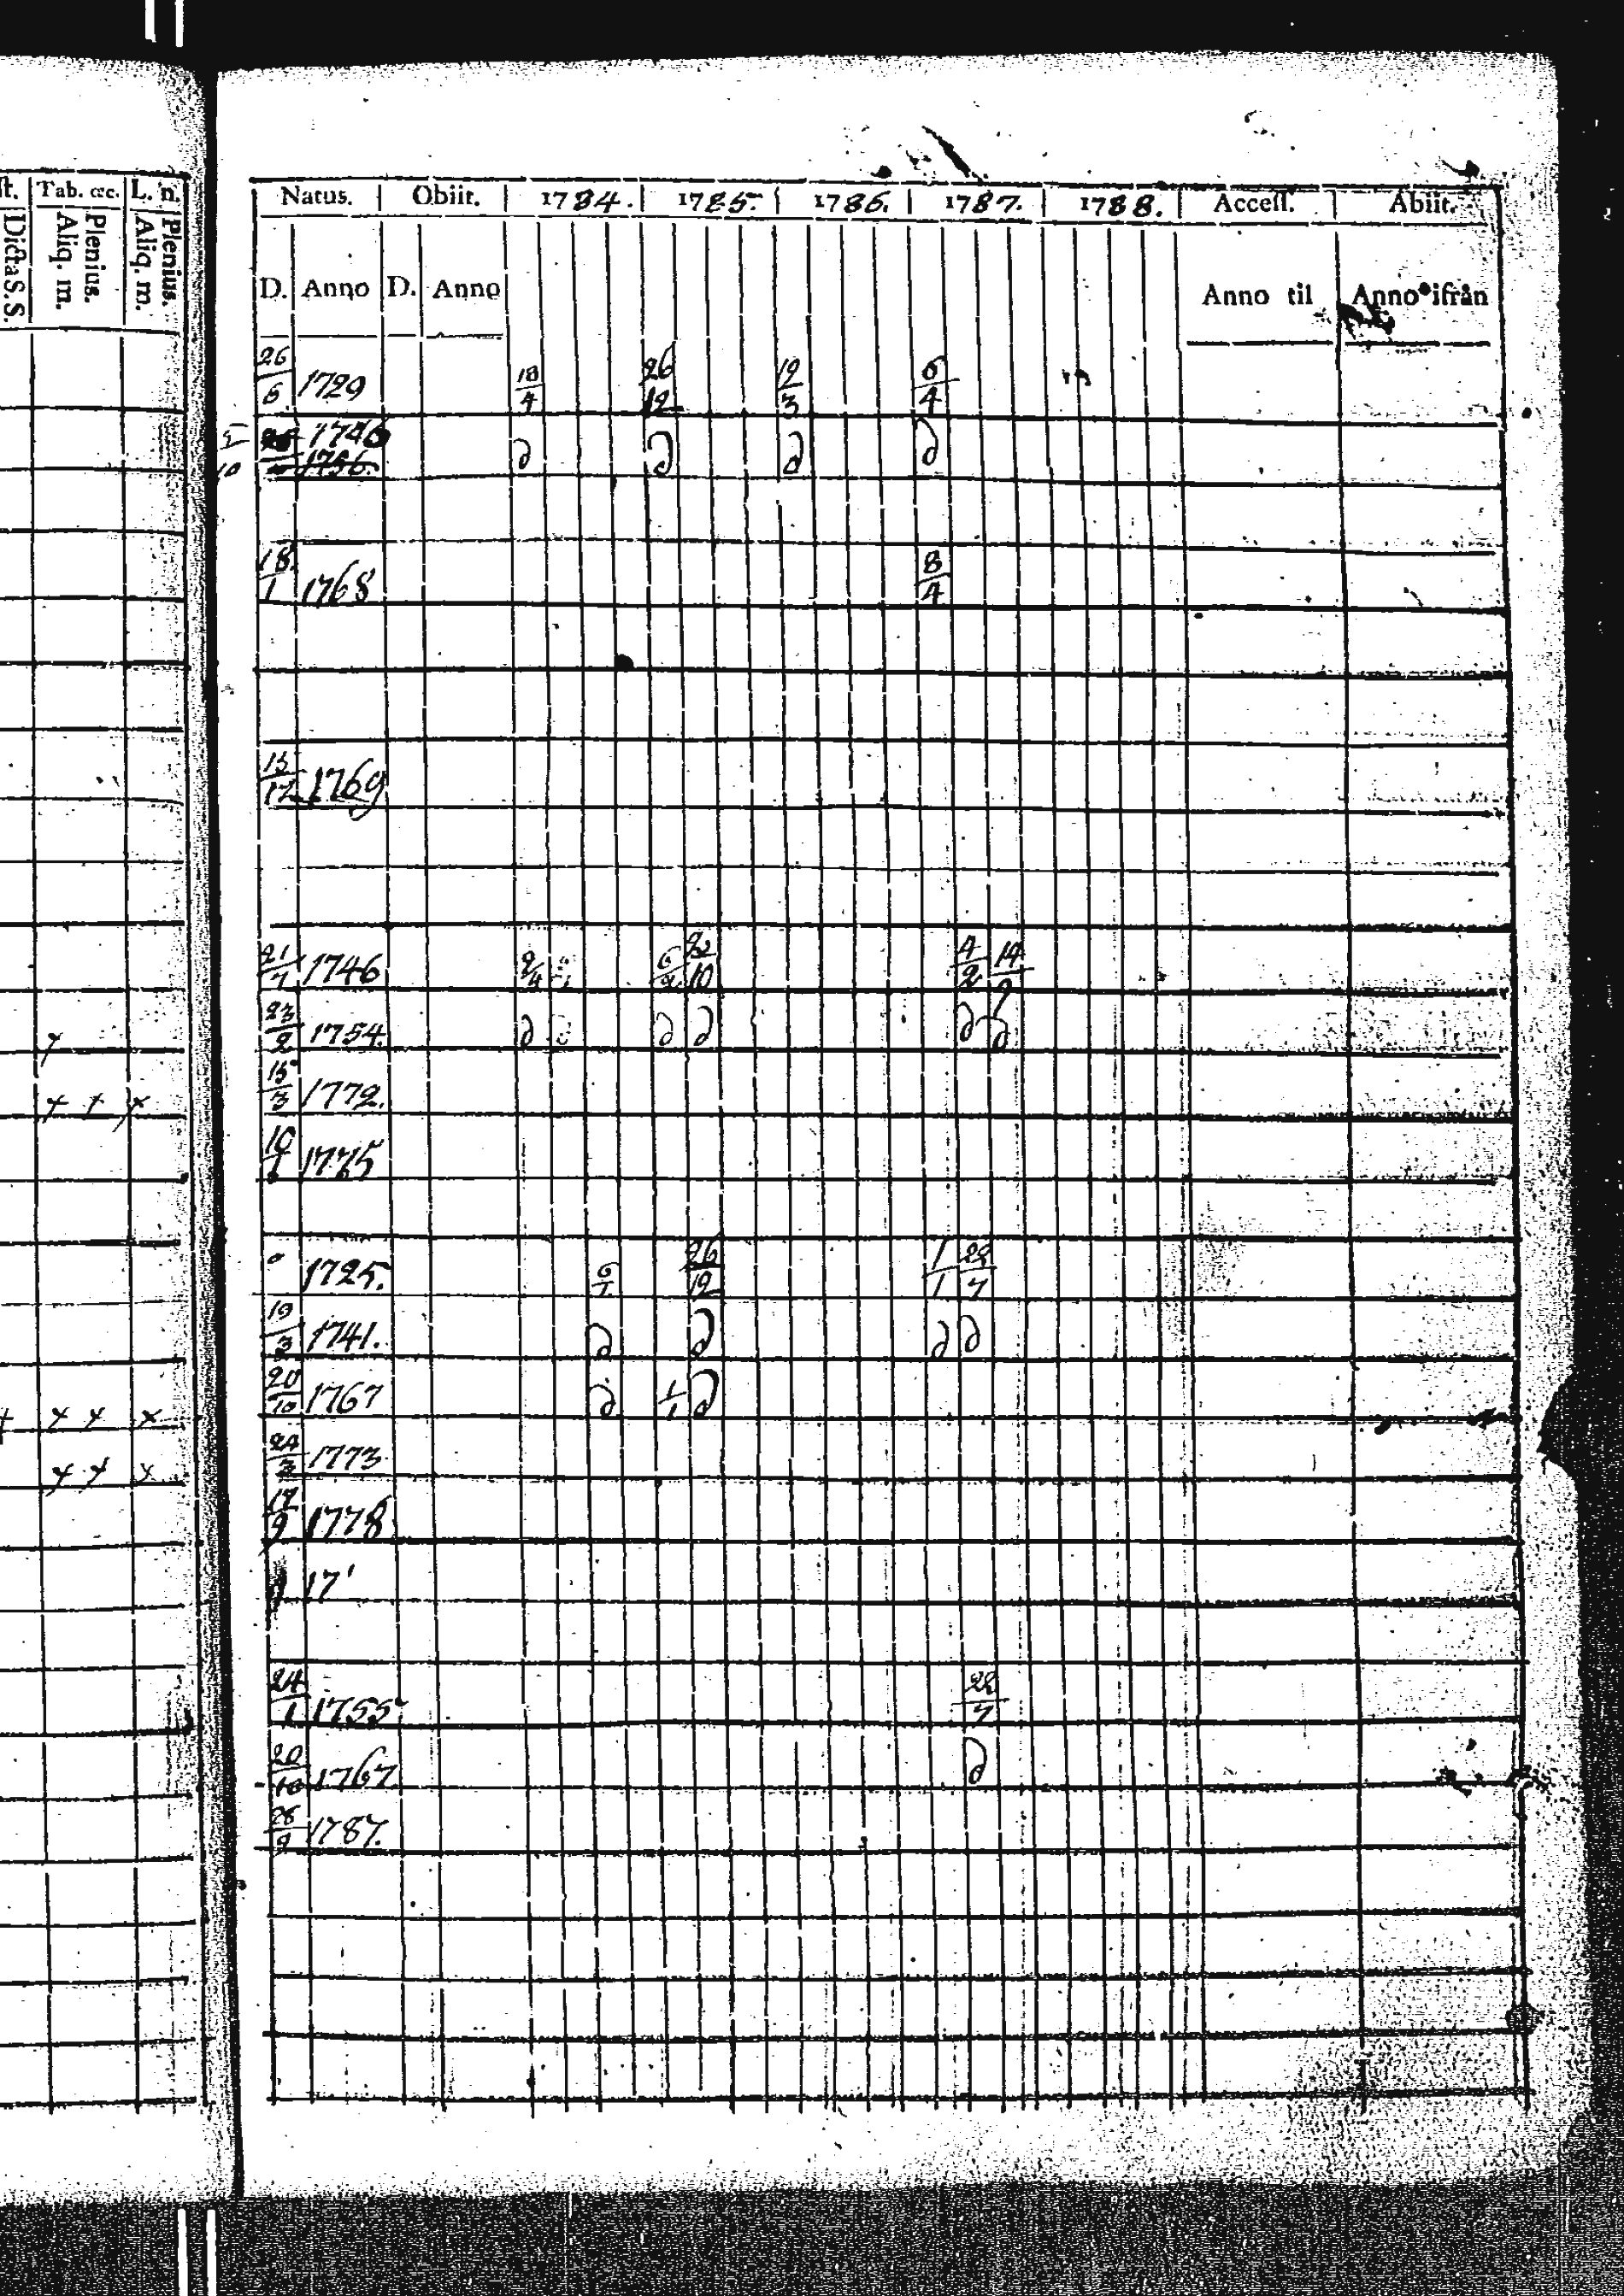 st. Tab. &c. L. n.
Dicta S.S. Aliq. m. Plenius. Aliq. m. Plenius.
Natus. Obiit. 1784. 1785. 1786. 1787. 1788. Access. Abiit.
D. Anno D. Anno Anno til Anno ifrån
26/6 1729 18/4 26/12 19/3 6/4
5/10 1746 ∂ ∂ ∂ ∂
1756.
18/1 1768 8/4
15/12 1769
21/7 1746 2/4 6/2 2/10 4/2 14/7
23/2 1754. ∂ ∂ ∂ ∂ ∂
x
15/3 1772.
x x x
10/1 1775
1725. 6/1 26/12 1/1 22/7
19/3 1741. ∂ ∂ ∂ ∂
20/10 1767 ∂ 1/1 ∂
+ x x x
24/3 1773
x x x
12/9 1778
17
24/1 1755 22/7
20/10 1767. ∂
28/9 1787.